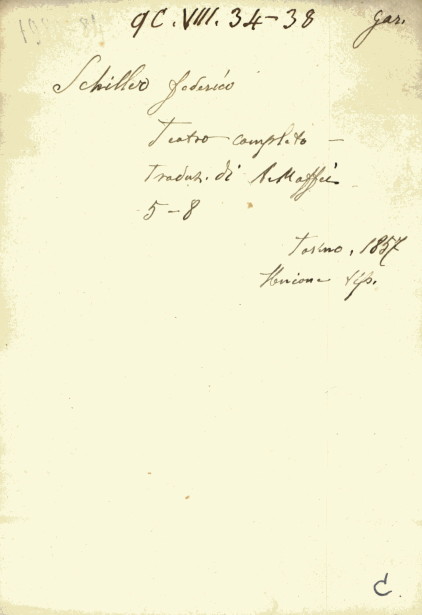 9C.VIII.34-38 gar.
Schiller Federico
Teatro completo -
Traduz. di A. Maffei
5-8
Torino, 1857
Unione tip.
C.